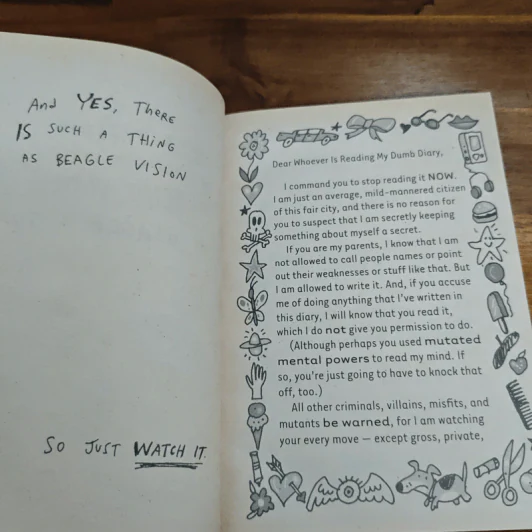 And YES, There
IS SUCH A THING
AS BEAGLE VISION
SO JUST WATCH IT.
Dear Whoever Is Reading My Dumb Diary,
I command you to stop reading it NOW.
I am just an average, mild-mannered citizen
of this fair city, and there is no reason for
you to suspect that I am secretly keeping
something about myself a secret.
If you are my parents, I know that I am
not allowed to call people names or point
out their weaknesses or stuff like that. But
I am allowed to write it. And, if you accuse
me of doing anything that I've written in
this diary, I will know that you read it,
which I do not give you permission to do.
(Although perhaps you used mutated
mental powers to read my mind. If
so, you're just going to have to knock that
off, too.)
All other criminals, villains, misfits, and
mutants be warned, for I am watching
your every move — except gross, private,